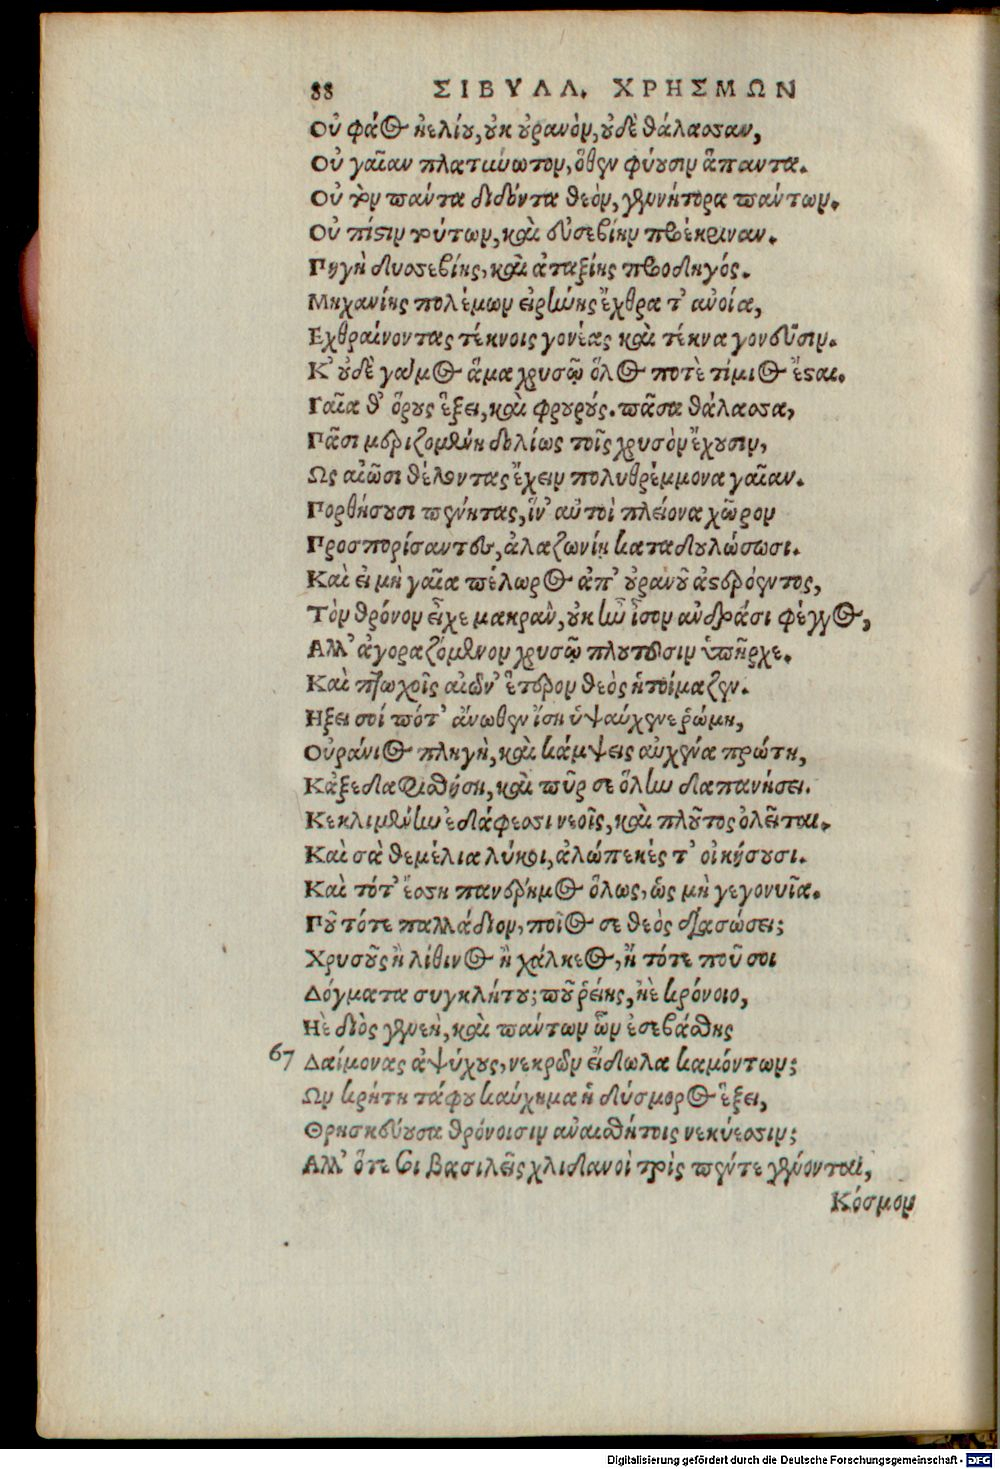 88 ΣΙΒΥΛΛ. ΧΡΗΣΜΩΝ
Οὐ φάος ἠελίου, οὐκ οὐρανὸν, οὐδὲ θάλασσαν,
Οὐ γαῖαν πλατύνωτον, ὅθεν φύουσιν ἅπαντα.
Οὐ τὸν πάντα διδόντα θεὸν, γενήτορα πάντων.
Οὐ πίστιν τούτων, καὶ εὐσεβίην προέκριναν.
Πηγὴ δυσσεβίης, καὶ ἀταξίης προοδηγός.
Μηχανίης πολέμων εἰρήνης ἔχθρα τ' ἀνοία,
Εχθραίνοντας τέκνοις γονέας καὶ τέκνα γονεῦσιν.
Κ' οὐδὲ γάμος ἅμα χρυσῷ ὅλος ποτὲ τίμιος ἔσται.
Γαῖα θ' ὅρους ἕξει, καὶ φρουρούς. πᾶσα θάλασσα,
Πᾶσι μεριζομένη δολίως τοῖς χρυσὸν ἔχουσιν,
Ως αἰῶσι θέλοντας ἔχειν πολυθρέμμονα γαῖαν.
Πορθήσουσι πένητας, ἵν' αὐτοὶ πλείονα χῶρον
Προσπορίσαντες, ἀλαζωνίῃ καταδουλώσωσι.
Καὶ εἰ μὴ γαῖα πέλωρος ἀπ' οὐρανοῦ ἀστερόεντος,
Τὸν θρόνον εἶχε μακρὰν, οὐκ ἦν ἶσον ἀνδράσι φέγγος,
Αλλ' ἀγοραζόμενον χρυσῷ πλουτοῦσιν ὑπῆρχε.
Καὶ πτωχοῖς αἰῶν' ἕτερον θεὸς ἡτοίμαζεν.
Ηξει σοί πότ' ἄνωθεν ἴση ὑψαύχενε ῥώμη,
Οὐράνιος πληγὴ, καὶ κάμψεις αὐχένα πρώτη,
Κἀξεδαφισθήσῃ, καὶ πῦρ σε ὅλην δαπανήσει.
Κεκλιμένην ἐδάφεσσι νεοῖς, καὶ πλοῦτος ὀλεῖται.
Καὶ σὰ θεμέλια λύκοι, ἀλώπεκές τ' οἰκήσουσι.
Καὶ τότ' ἔσσῃ πανέρημος ὅλως, ὡς μὴ γεγονυῖα.
Ποῦ τότε παλλάδιον, ποῖος σε θεὸς διασώσει;
Χρυσοῦς ἢ λίθινος ἢ χάλκεος, ἢ τότε ποῦ σοι
Δόγματα συγκλήτου; ποῦ ῥείης, ἠὲ κρόνοιο,
Ηὲ διὸς γενεὴ, καὶ πάντων ὧν ἐσεβάσθης
67 Δαίμονας ἀψύχους, νεκρῶν εἴδωλα καμόντων;
Ων κρήτη τάφου καύχημα ἡ δύσμορος ἕξει,
Θρησκεύουσα θρόνοισιν ἀναισθήτοις νεκύεσσιν;
Αλλ' ὅτε σοι βασιλεῖς χλιδανοὶ τρὶς πέντε γένονται,
Κόσμον
Digitalisierung gefördert durch die Deutsche Forschungsgemeinschaft - DFG